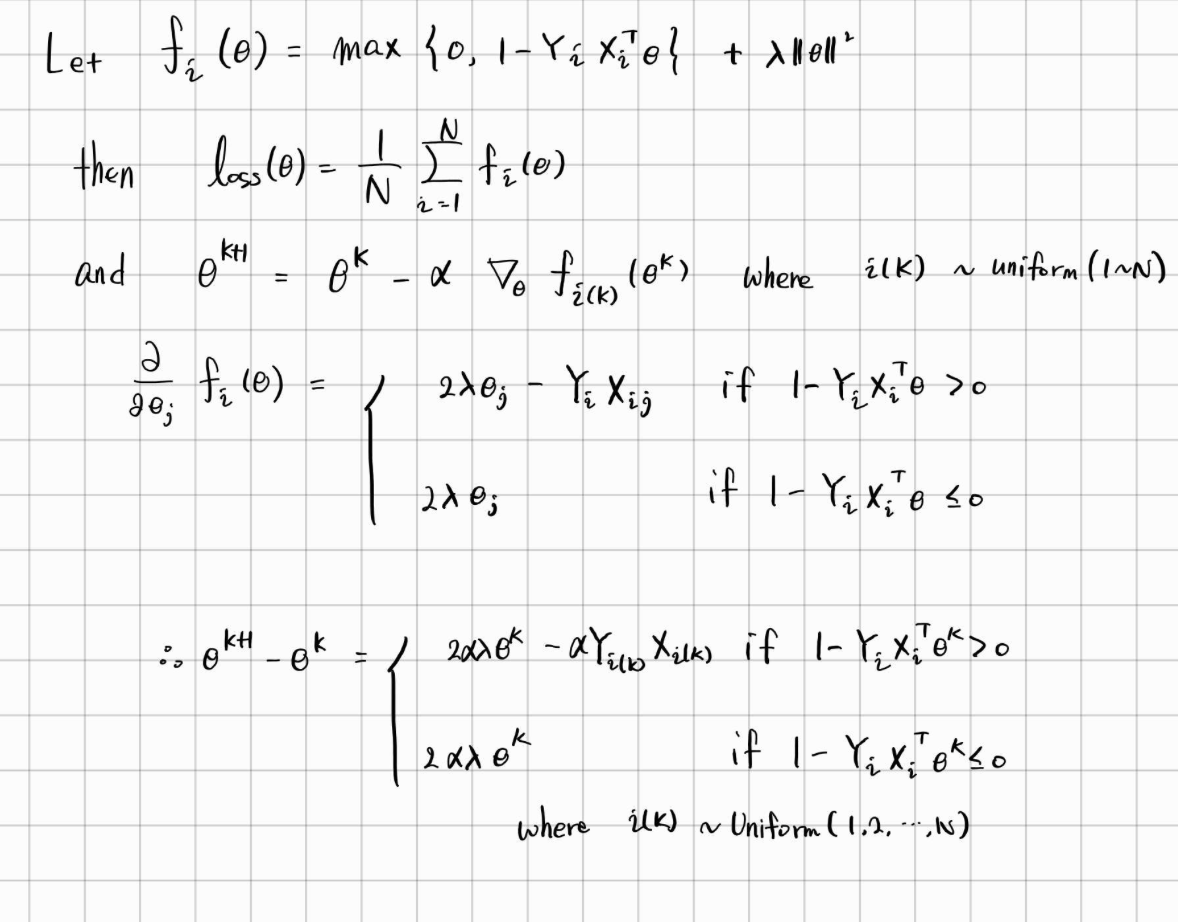 Let f_i(θ) = max {0, 1 - Y_i X_i^T θ} + λ‖θ‖²
then loss(θ) = 1/N ∑_{i=1}^{N} f_i(θ)
and θ^{k+1} = θ^k - α ∇_θ f_{i(k)}(θ^k) where i(k) ~ uniform(1~N)
∂/∂θ_j f_i(θ) = { 2λθ_j - Y_i X_{ij} if 1 - Y_i X_i^T θ > 0
2λθ_j if 1 - Y_i X_i^T θ ≤ 0
∴ θ^{k+1} - θ^k = { 2αλθ^k - αY_{i(k)} X_{i(k)} if 1 - Y_i X_i^T θ^k > 0
2αλθ^k if 1 - Y_i X_i^T θ^k ≤ 0
where i(k) ~ Uniform(1,2,…,N)